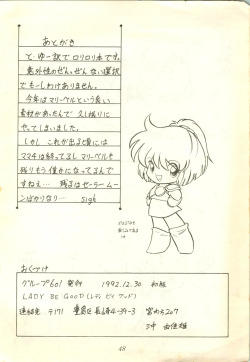 あとがき
と ゆー訳で ロリロリ本です。
意外性のぜんぜん ない選択
で もーしわけありません。
今年はマリーベルという良い
素材があったんで 久し振りに
やってしまいました。
しかし これが出る頃には
ママも4は終ってるし マリーベルも
残りもう僅かになってるんで
すねえ… 残るはセーラームー
ンばかりなり… sigh
おくづけ
グループ601 発行 1992.12.30 初版
LADY BE GOOD (レディ ビイ グッド)
連絡先 〒171 豊島区長崎4-39-3